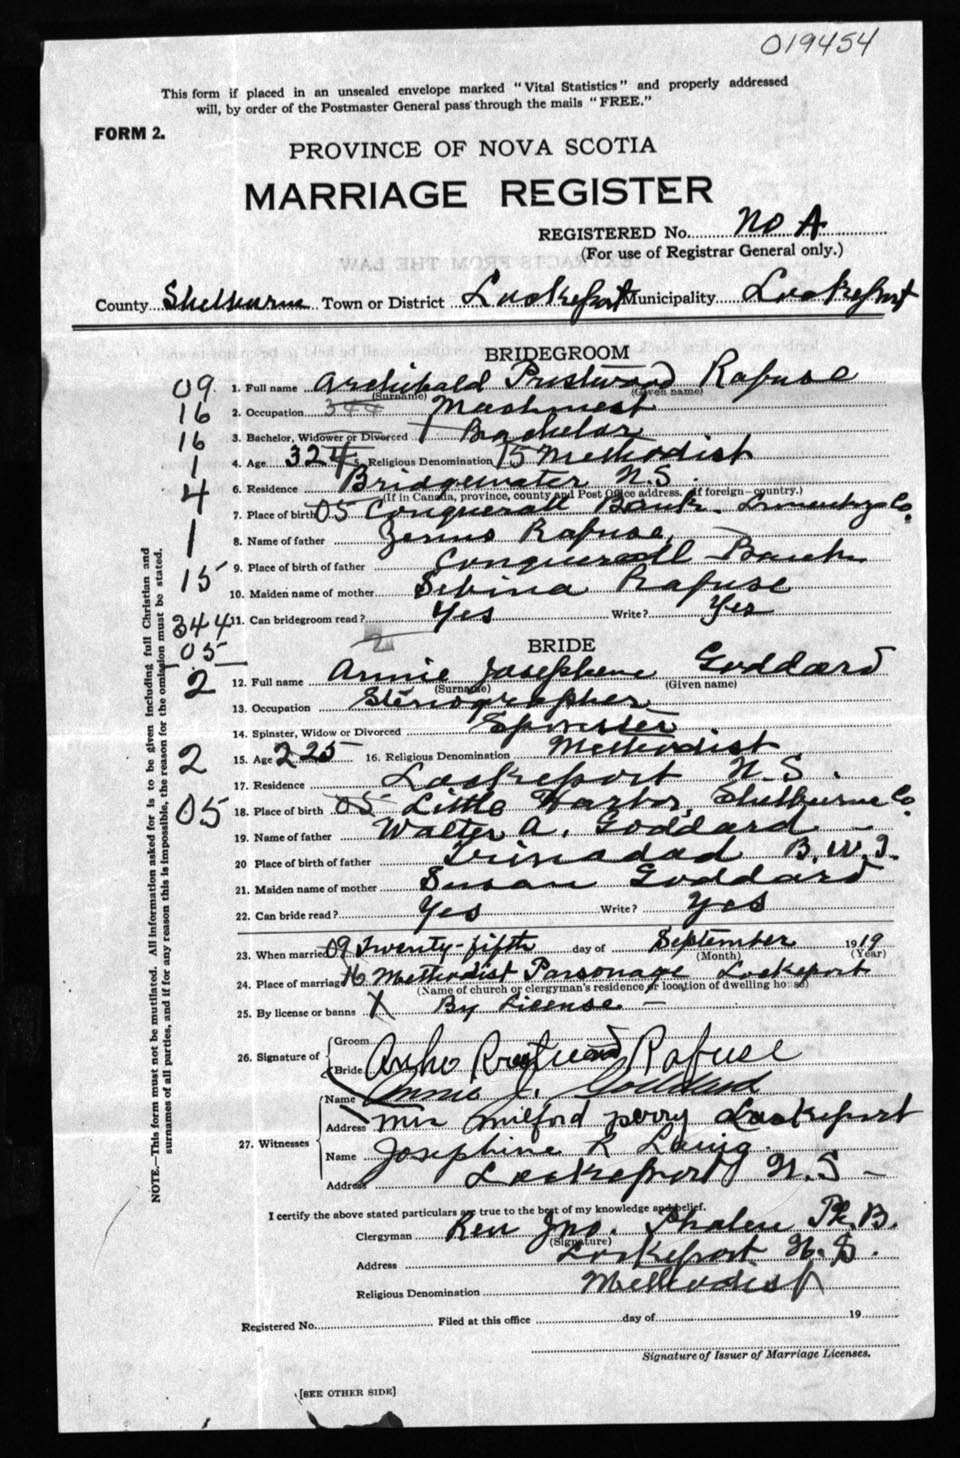 019454
This form if placed in an unsealed envelope marked "Vital Statistics" and properly addressed
will, by order of the Postmaster General pass through the mails "FREE."
FORM 2.
PROVINCE OF NOVA SCOTIA
MARRIAGE REGISTER
REGISTERED No. No A
(For use of Registrar General only.)
County Shelburne Town or District Lockeport Municipality Lockeport
BRIDEGROOM
09 1. Full name Archibald Prestwood Rafuse
(Surname) (Given name)
16 2. Occupation 344 Machinest
16 3. Bachelor, Widower or Divorced 1 Bachelor
1 4. Age 32 4 5. Religious Denomination 15 Methodist
4 6. Residence Bridgewater N.S.
(If in Canada, province, county and Post Office address. If foreign—country.)
7. Place of birth 05 Conquerall Bank. Lunenburg Co.
1 8. Name of father Zenus Rafuse,
9. Place of birth of father Conquerall Bank
15 10. Maiden name of mother Sebina Rafuse
344 11. Can bridegroom read? Yes Write? Yes
05 2 BRIDE
2 12. Full name Annie Josephene Goddard
(Surname) (Given name)
13. Occupation Stenographer
14. Spinster, Widow or Divorced Spinster
2 15. Age 2 25 16. Religious Denomination Methodist
17. Residence Lockeport N.S.
05 18. Place of birth 05 Little Harbor, Shelburne Co.
19. Name of father Walter A. Goddard —
20 Place of birth of father Trinadad B.W.I.
21. Maiden name of mother Susan Goddard
22. Can bride read? Yes Write? Yes
23. When married 09 Twenty-fifth day of September 1919
(Month) (Year)
24. Place of marriage Methodist Parsonage Lockeport
(Name of church or clergyman's residence or location of dwelling house)
25. By license or banns X By License —
26. Signature of Groom Archo Prestwood Rafuse
Bride Annie J. Goddard
27. Witnesses
Name
Address Mrs Milford Perry Lockeport
Name Josephine R Laing.
Address Lockeport N.S —
I certify the above stated particulars are true to the best of my knowledge and belief.
Clergyman Rev Jno. Phalen Ph.B.
(Signature)
Address Lockeport N.S.
Religious Denomination Methodist
Registered No. Filed at this office day of 19
Signature of Issuer of Marriage Licenses.
[SEE OTHER SIDE]
NOTE.—This form must not be mutilated. All information asked for is to be given including full Christian and
surnames of all parties, and if for any reason this is impossible, the reason for the omission must be stated.